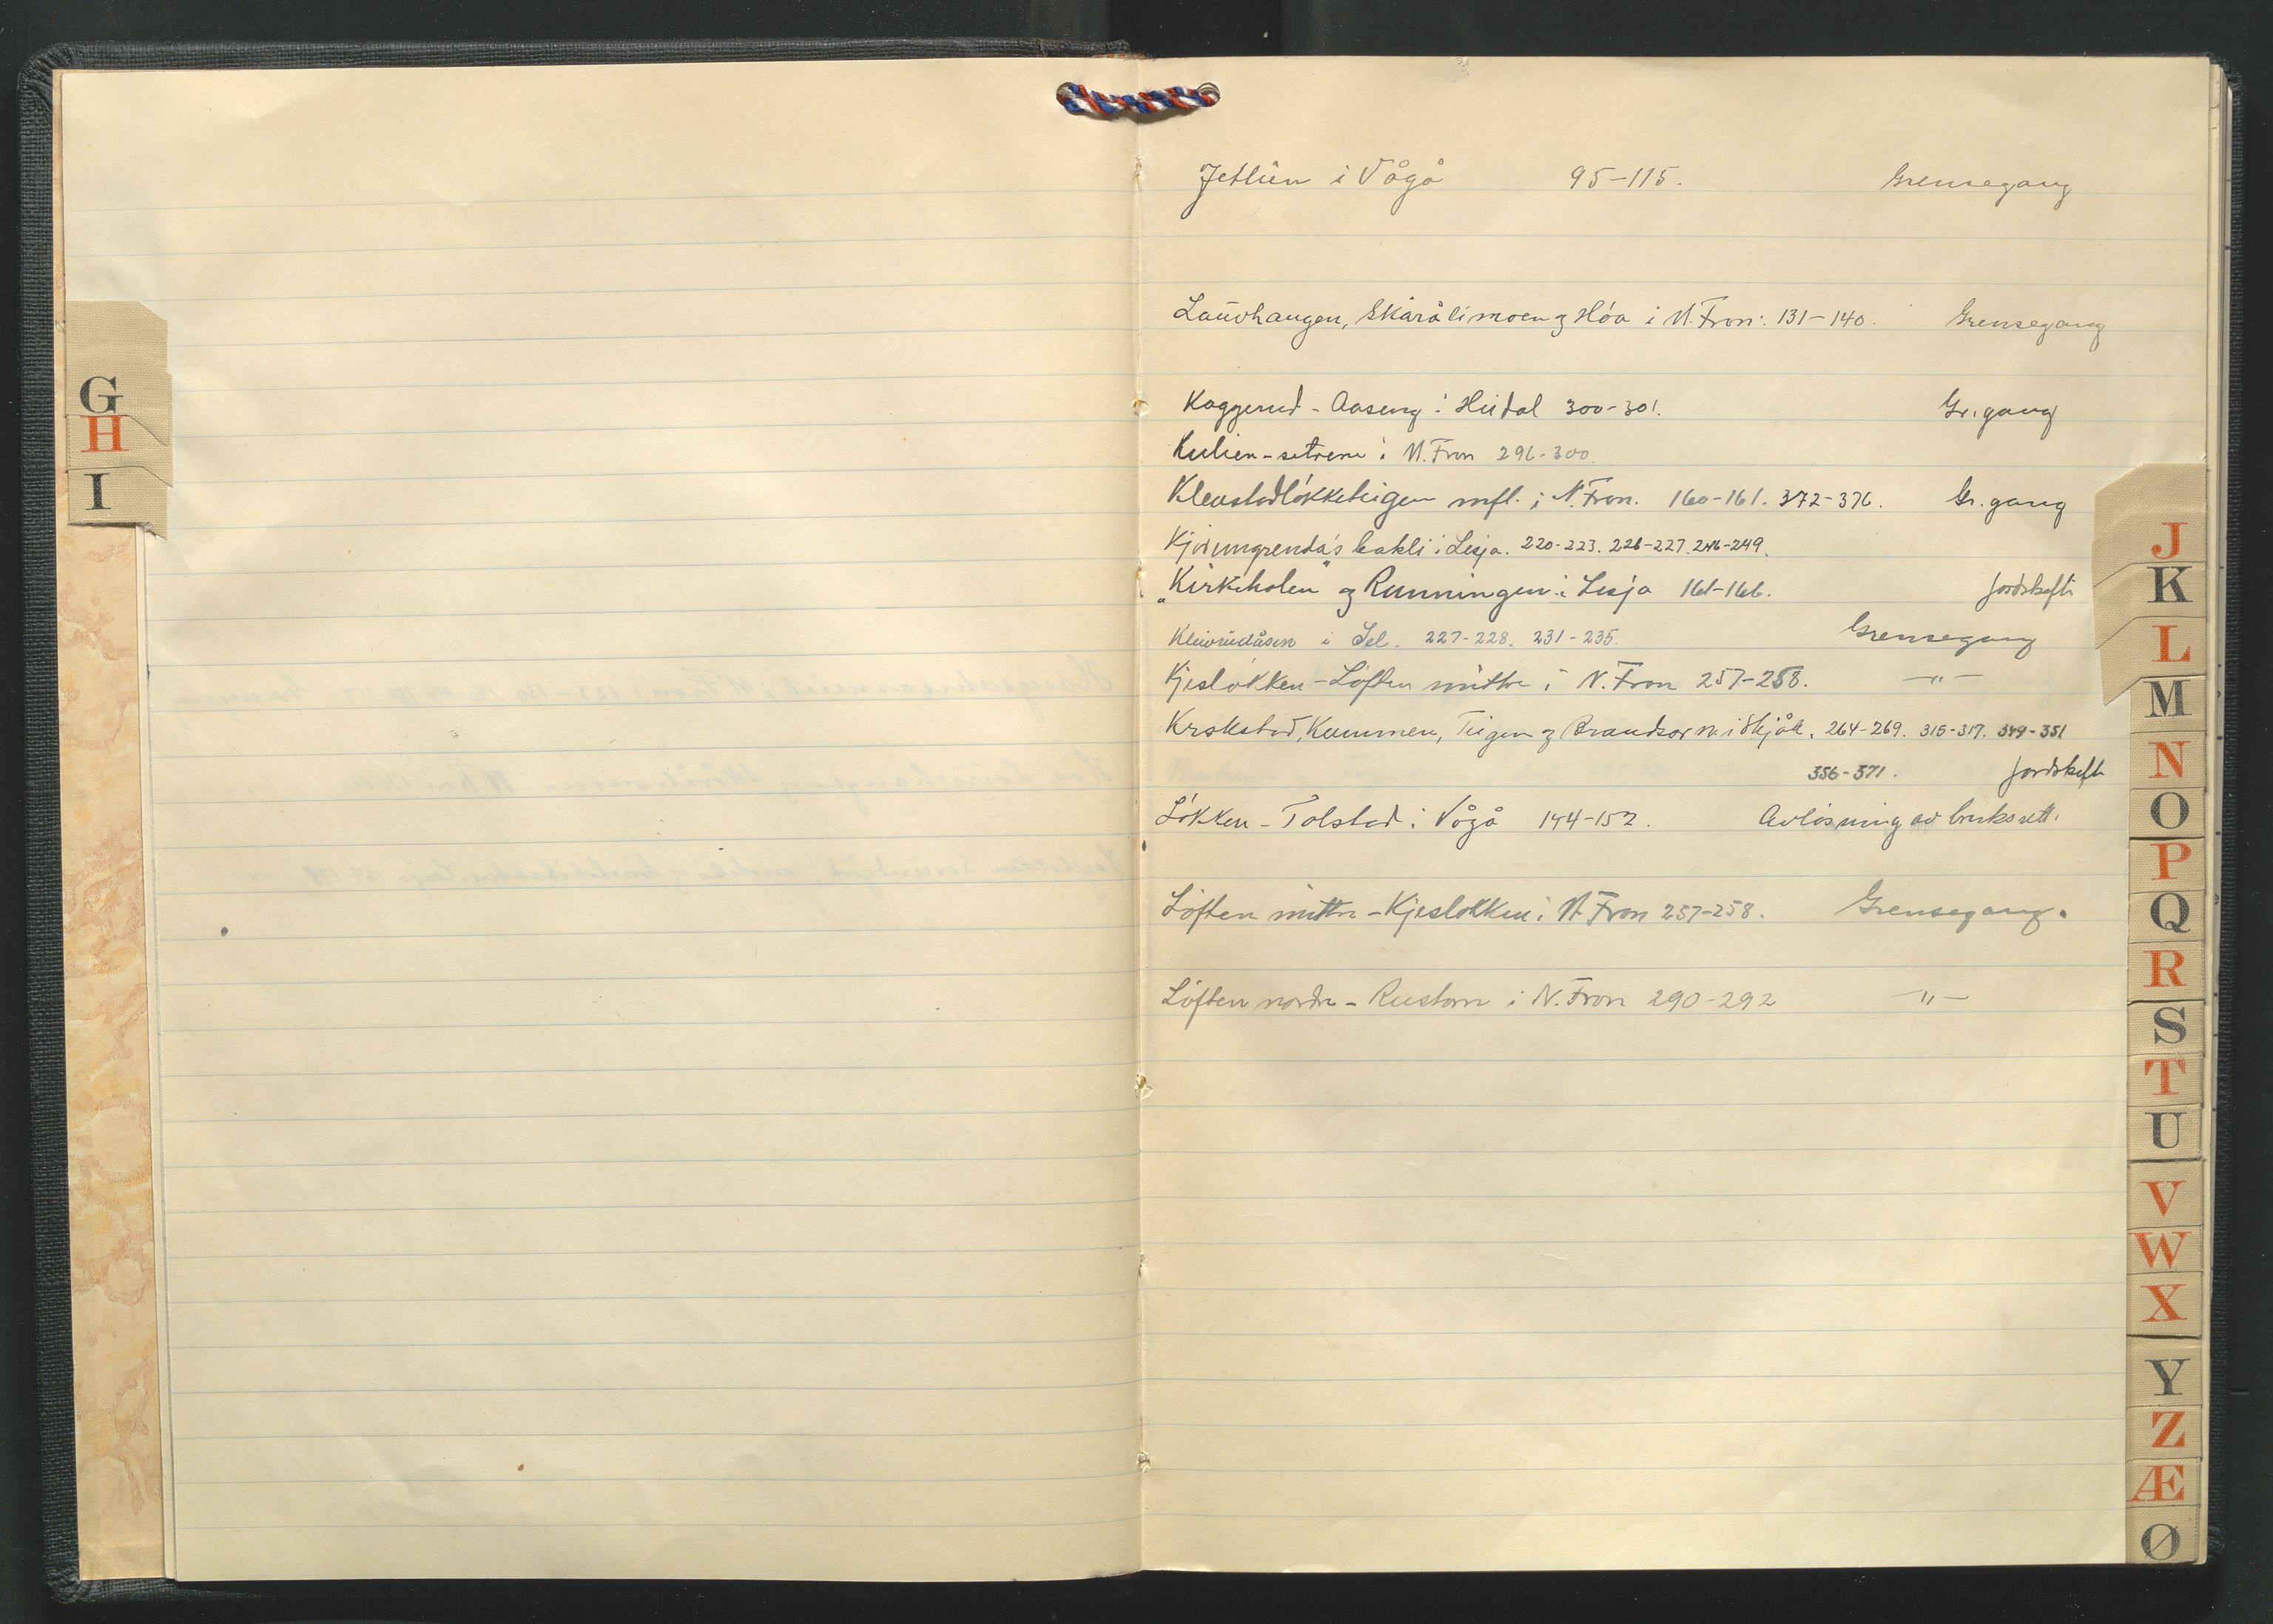 G
H
I
Jetlien i Vågå 95-115. Grensegang
Lauvhaugen, Skåråli moen og Hóa i N. Fron: 131-140. Grensegang
Kaggerud - Aaseng i Heidal 300-301. Gr. gang
Kulien - setrene i N. Fron 296-300.
Klevstadlökketeigen mfl. i N. Fron. 160-161. 372-376. Gr. gang
Kjörumgrenda's bakli i Lesja. 220-223. 226-227. 246-249.
"Kirkeholen" og Runningen i Lesja 161-166. Jordskifte
Kleivrudåsen i Sel. 227-228. 231-235. Grensegang
Kjeslökken - Löften mittre i N. Fron 257-258. -"-
Krokstad, Kummen, Teigen og Brandsar n. i Skjåk. 264-269. 315-317. 349-351
356-371. Jordskifte
Lökken - Tolstad i Vågå 144-152. Avlösning av bruksrett.
Löften mittre - Kjeslökken i N. Fron 257-258. Grensegang.
Löften nordre - Rustom i N. Fron 290-292 -"-
J
K
L
M
N
O
P
Q
R
S
T
U
V
W
X
Y
Z
Æ
Ø